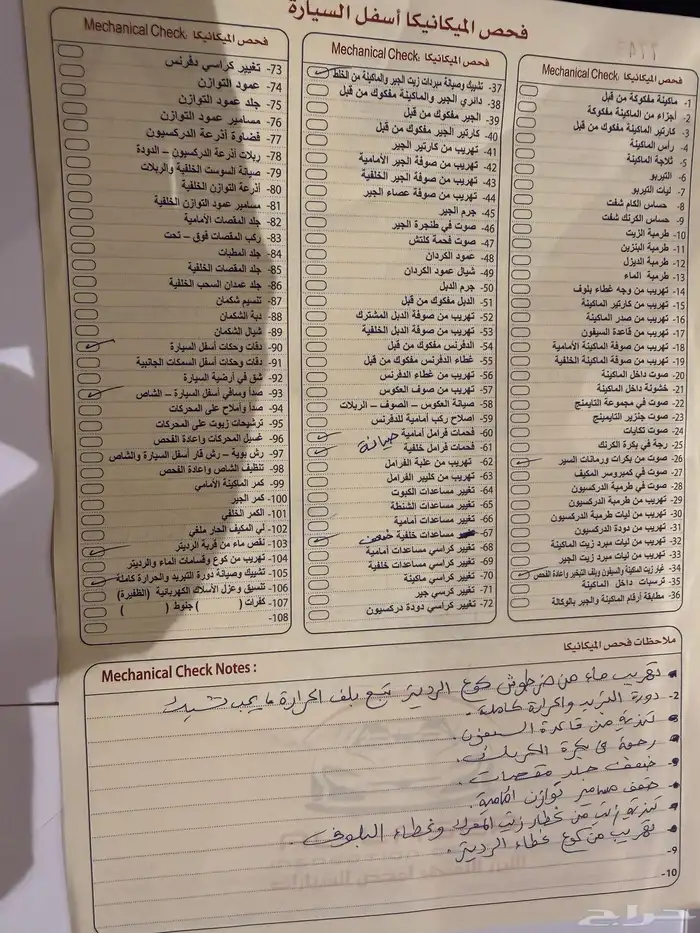 فحص الميكانيكا أسفل السيارة
فحص الميكانيكا :Mechanical Check
1- ماكينة مفكوكة من قبل
2- أجزاء من الماكينة مفكوكة
3- كارتير الماكينة مفكوك من قبل
4- رأس الماكينة
5- ثلاجة الماكينة
6- التيربو
7- ليات التيربو
8- حساس الكام شفت
9- حساس الكرنك شفت
10- طرمبة الزيت
11- طرمبة البنزين
12- طرمبة الديزل
13- طرمبة الماء
14- تهريب من وجه غطاء بلوف
15- تهريب من كارتير الماكينة
16- تهريب من صدر الماكينة
17- تهريب من قاعدة السيفون
18- تهريب من صوفة الماكينة الأمامية
19- تهريب من صوفة الماكينة الخلفية
20- صوت داخل الماكينة
21- خشونة داخل الماكينة
22- صوت في مجموعة التايمنج
23- صوت جنزير التايمينج
24- صوت تكايات
25- رجة في بكرة الكرنك
26- صوت من بكرات ورمانات السير
27- صوت في كمبروسر المكيف
28- صوت في طرمبة الدركسيون
29- تهريب من طرمبة الدركسيون
30- تهريب من ليات طرمبة الدركسيون
31- تهريب من دودة الدركسيون
32- تهريب من ليات مبرد زيت الماكينة
33- تهريب من ليات مبرد زيت الجير
34- غيار زيت الماكينة والسيفون وبلف التبخير واعادة الفحص
35- ترسبات داخل الماكينة
36- مطابقة أرقام الماكينة والجير بالوكالة
فحص الميكانيكا :Mechanical Check
37- تشييك وصيانة مبردات زيت الجير والماكينة من الخلط
38- دائري الجير والماكينة مفكوك من قبل
39- الجير مفكوك من قبل
40- كارتير الجير مفكوك من قبل
41- تهريب من كارتير الجير
42- تهريب من صوفة الجير الأمامية
43- تهريب من صوفة الجير الخلفية
44- تهريب من صوفة عصاء الجير
45- جرم الجير
46- صوت في طنجرة الجير
47- صوت فحمة كلتش
48- عمود الكردان
49- شيال عمود الكردان
50- جرم الدبل
51- الدبل مفكوك من قبل
52- تهريب من صوفة الدبل المشترك
53- تهريب من صوفة الدبل الخلفية
54- الدفرنس مفكوك من قبل
55- غطاء الدفرنس مفكوك من قبل
56- تهريب من غطاء الدفرنس
57- تهريب من صوف العكوس
58- صيانة العكوس – الصوف – الربلات
59- اصلاح ركب أمامية للدفرنس
60- فحمات فرامل أمامية صيانة
61- فحمات فرامل خلفية
62- تهريب من علبة الفرامل
63- تهريب من كليبر الفرامل
64- تغيير مساعدات الكبوت
65- تغيير مساعدات الشنطة
66- تغيير مساعدات أمامية
67- مساعدات خلفية ضعف
68- تغيير كراسي مساعدات أمامية
69- تغيير كراسي مساعدات خلفية
70- تغيير كراسي ماكينة
71- تغيير كرسي جير
72- تغيير كراسي دودة دركسيون
فحص الميكانيكا :Mechanical Check
73- تغيير كراسي دفرنس
74- عمود التوازن
75- جلد عمود التوازن
76- مسامير عمود التوازن
77- فضاوة أذرعة الدركسيون
78- ربلات أذرعة الدركسيون – الدودة
79- صيانة السوست الخلفية والربلات
80- أذرعة التوازن الخلفية
81- مسامير عمود التوازن الخلفية
82- جلد المقصات الأمامية
83- ركب المقصات فوق – تحت
84- جلد المطبات
85- جلد المقصات الخلفية
86- جلد عمدان السحب الخلفية
87- تنسيم شكمان
88- دبة الشكمان
89- شيال الشكمان
90- دقات وحكات أسفل السيارة
91- دقات وحكات أسفل السمكات الجانبية
92- شق في أرضية السيارة
93- صدأ وسافي أسفل السيارة – الشاص
94- صدأ وأملاح على المحركات
95- ترشيحات زيوت على المحركات
96- غسيل المحركات واعادة الفحص
97- رش بوية – رش قار أسفل السيارة والشاص
98- تنظيف الشاص واعادة الفحص
99- كمر الماكينة الأمامي
100- كمر الجير
101- الكمر الخلفي
102- لي المكيف الحار ملغي
103- نقص ماء من قربة الرديتر
104- تهريب من كوع وقسامات الماء والرديتر
105- تشييك وصيانة دورة التبريد والحرارة كاملة
106- تنسيق وعزل الأسلاك الكهربائية (الظفيرة)
107- كفرات ( ) جنوط ( )
108-
ملاحظات فحص الميكانيكا
Mechanical Check Notes :
تهريب ماء من كوع الرديتر تبع بلف الحرارة
2- دورة التبريد والحرارة كاملة .
تنزية من قاعدة السيفون .
رجة في بكرة الكرنك .
ضعف جلد مقصات .
ضعف مسامير توازن أمامية .
تنزية زيت من زيت المحرك وغطاء البلوف .
تهريب من كوع غطاء الرديتر .
9-
10-
حراج